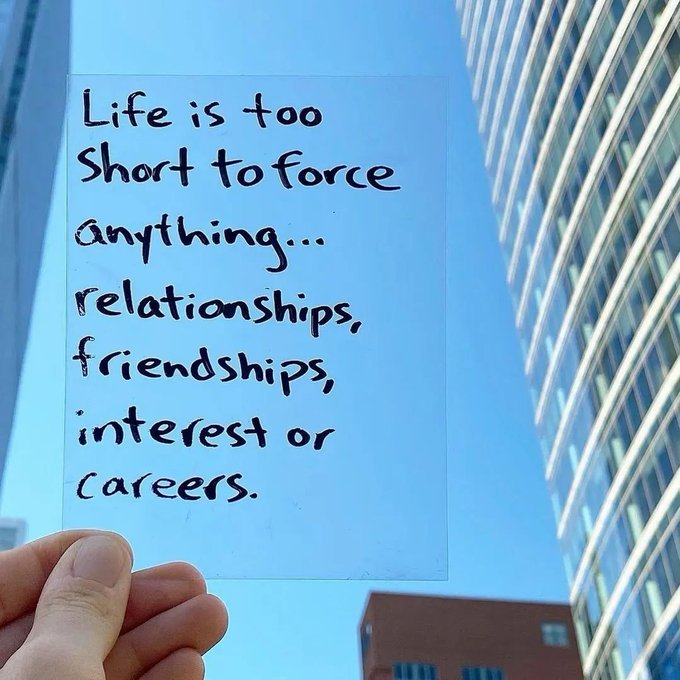 Life is too
Short to force
anything...
relationships,
friendships,
interest or
careers.